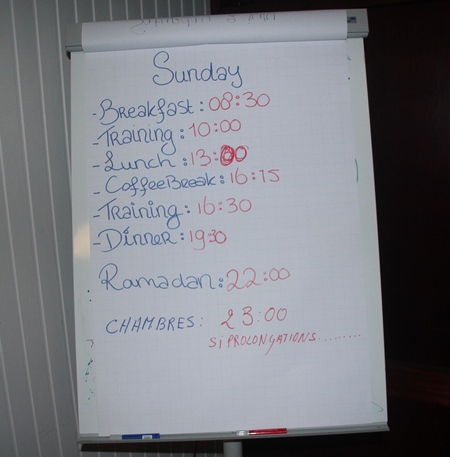 Sunday
- Breakfast: 08:30
- Training: 10:00
- Lunch: 13:00
- CoffeeBreak: 16:15
- Training: 16:30
- Dinner: 19:30
Ramadan: 22:00
CHAMBRES: 23:00
Si PROLONGATIONS.........